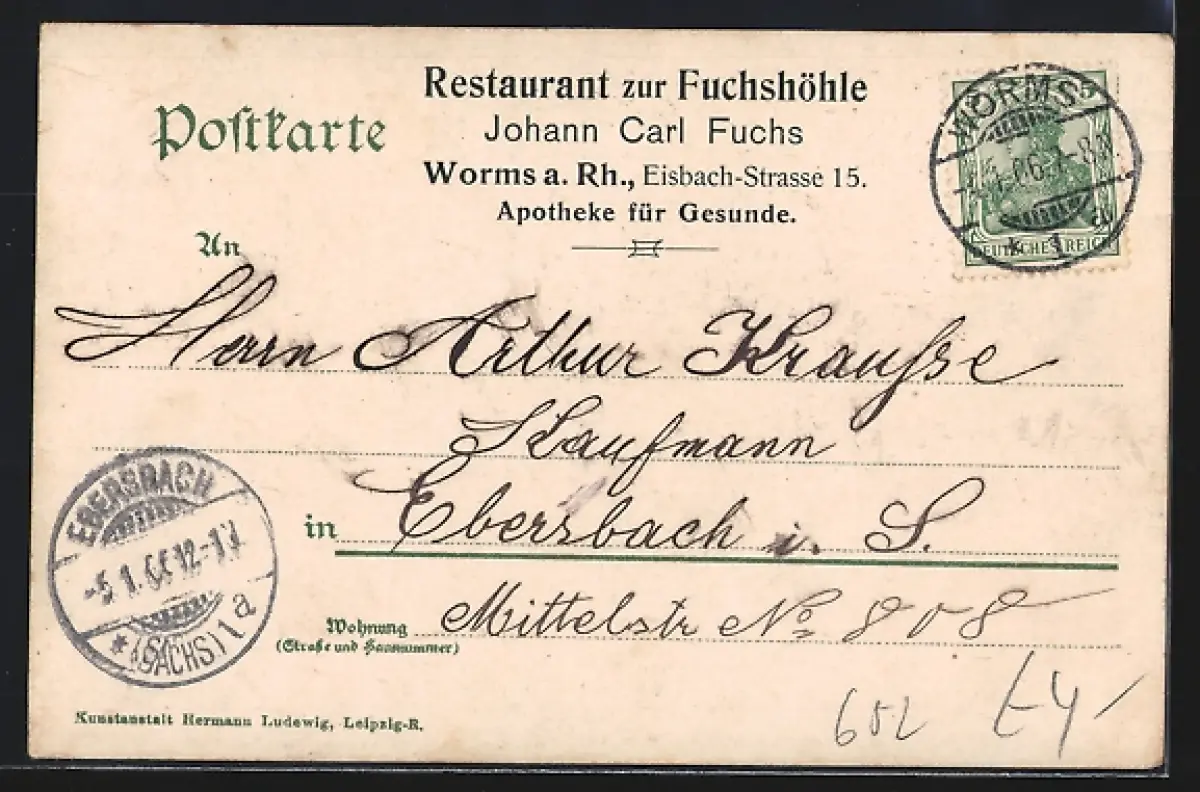 Restaurant zur Fuchshöhle
Johann Carl Fuchs
Worms a. Rh., Eisbach-Strasse 15.
Apotheke für Gesunde.
Poſtkarte
WORMS
5
DEUTSCHES REICH
* 1
An
Herrn Arthur Krauſse
Kaufmann
in Ebersbach i. S.
Wohnung Mittelstr No 808
(Straße und Hausnummer)
EBERSBACH
-5.1.06.12-1N.
* (SACHS) 1a
Kunstanstalt Hermann Ludewig, Leipzig-R.
602